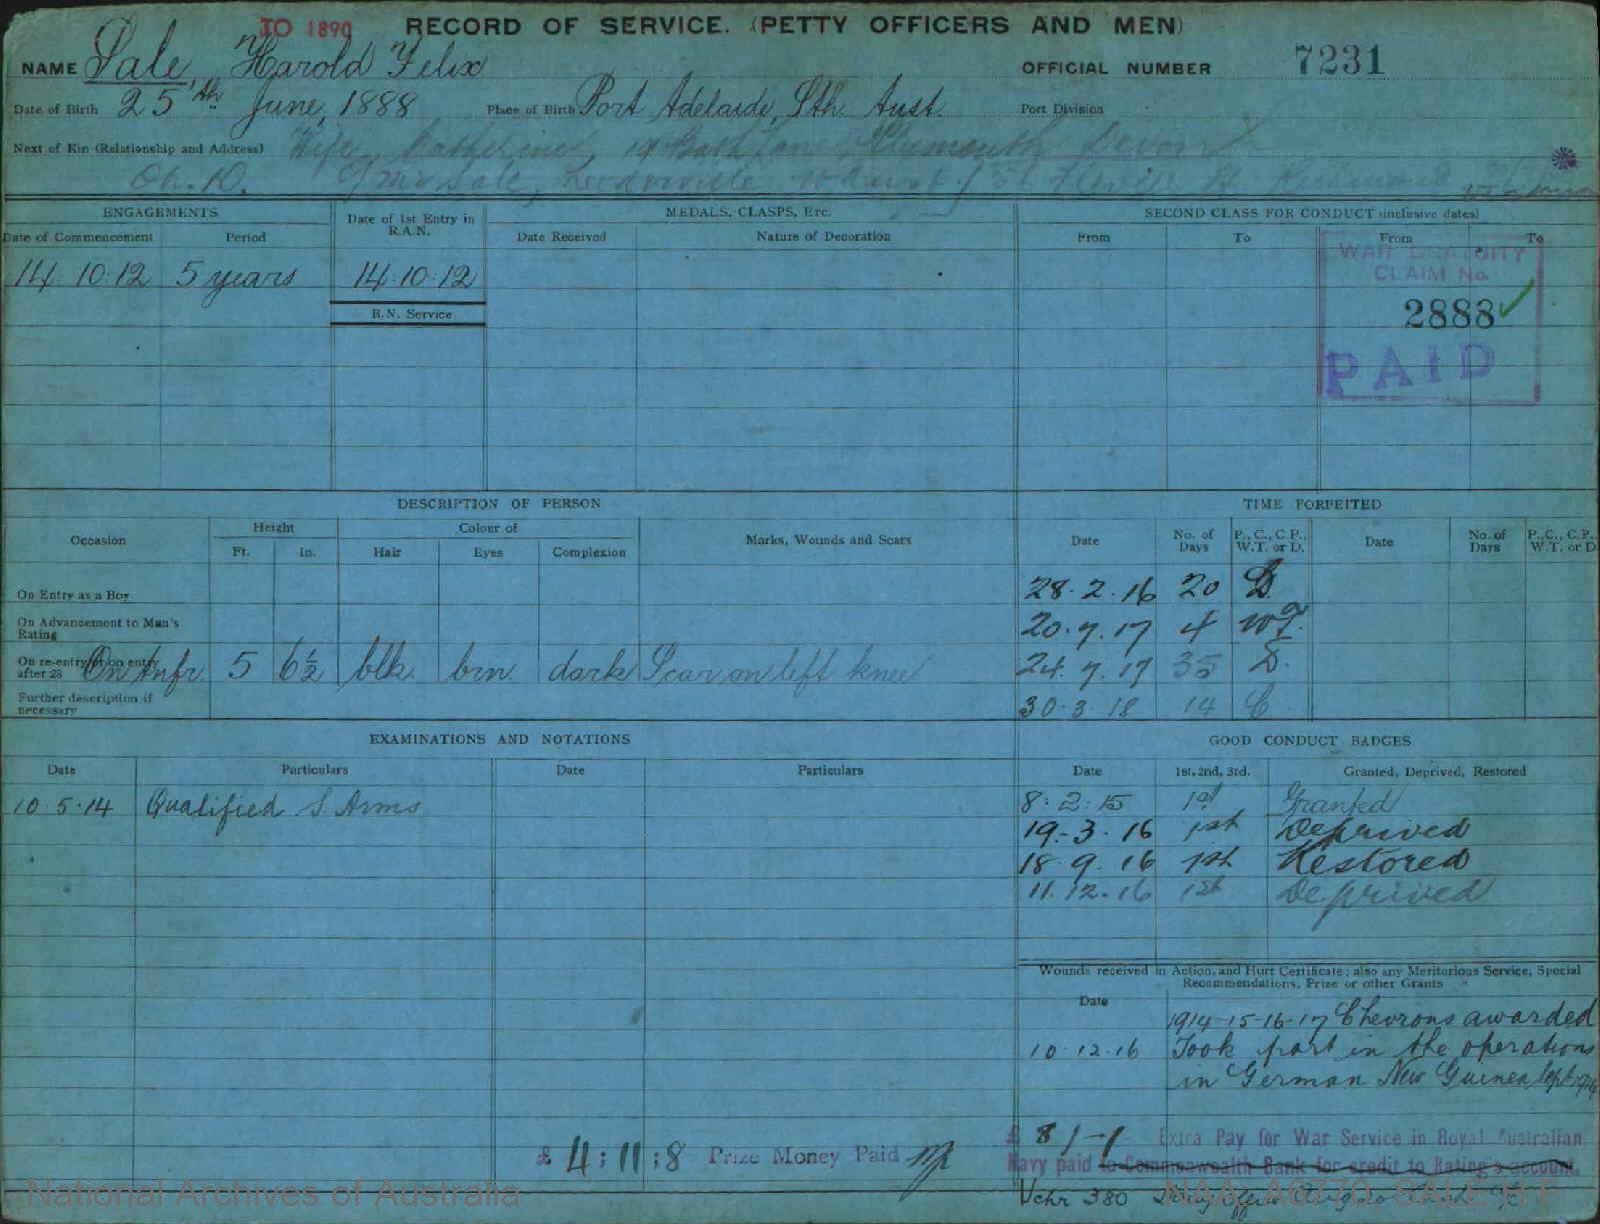 TO 1890 RECORD OF SERVICE. (PETTY OFFICERS AND MEN)
NAME Sale, Harold Felix OFFICIAL NUMBER 7231
Date of Birth 25th June, 1888 Place of Birth Port Adelaide, Sth Aust. Port Division
Next of Kin (Relationship and Address) Wife, Catherine, 19 Plymouth Devon
Ch. D. Sale,
ENGAGEMENTS Date of 1st Entry in R.A.N. MEDALS, CLASPS, Etc. SECOND CLASS FOR CONDUCT (inclusive dates)
Date of Commencement Period Date Received Nature of Decoration From To From To
14.10.12 5 years 14.10.12
WAR GRATUITY
CLAIM No.
2888
PAID
R.N. Service
DESCRIPTION OF PERSON TIME FORFEITED
Occasion Height Colour of Marks, Wounds and Scars Date No. of Days P., C., C.P., W.T. or D. Date No. of Days P., C., C.P., W.T. or D.
Ft. In. Hair Eyes Complexion
On Entry as a Boy 28.2.16 20 D.
On Advancement to Man's Rating 20.7.17 4 WT.
On re-entry or on entry after 28 On tnfr 5 6½ blk. brn dark Scar on left knee 24.7.17 35 D.
Further description if necessary 30.3.18 14 C
EXAMINATIONS AND NOTATIONS GOOD CONDUCT BADGES
Date Particulars Date Particulars Date 1st, 2nd, 3rd. Granted, Deprived, Restored
10.5.14 Qualified S. Arms 8.2.15 1st Granted
19.3.16 1st Deprived
18.9.16 1st Restored
11.12.16 1st Deprived
Wounds received in Action, and Hurt Certificate; also any Meritorious Service, Special
Recommendations, Prize or other Grants
Date
1914-15-16-17 Chevrons awarded
10.12.16 Took part in the operations
in German New Guinea, Sept
£ 4:11:8 Prize Money Paid
£ 8/-/- Extra Pay for War Service in Royal Australian
Navy paid to Commonwealth Bank for credit to Rating's account.
Vchr 380
National Archives of Australia NAA: A6770, SALE H F